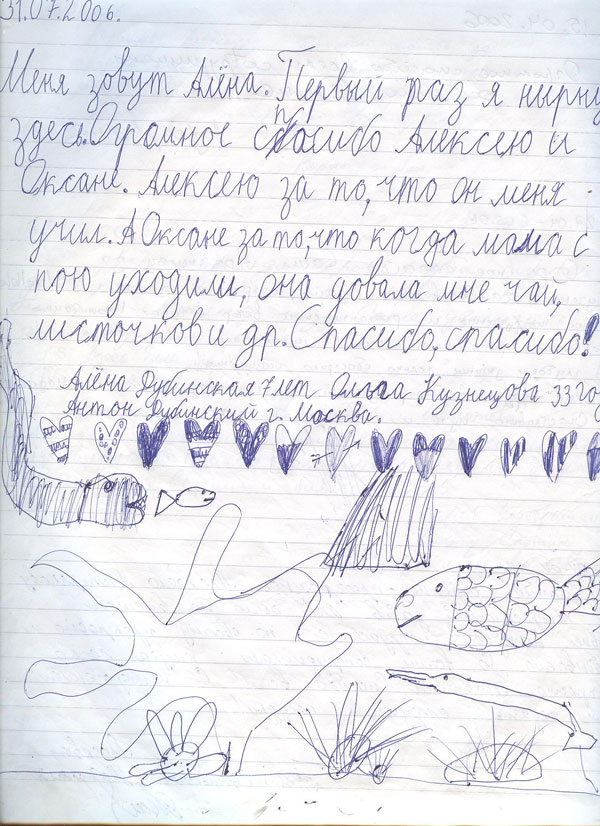 31.07.2006.
Меня зовут Алёна. Первый раз я нырну
здесь. Огромное спасибо Алексею и
Оксане. Алексею за то, что он меня
учил. А Оксане за то, что когда мама с
пою уходили, она довала мне чай,
листочков и др. Спасибо, спасибо!
Алёна Дубинская 7 лет Ольга Кузнецова 33 го
Антон Дубинский г. Москва.